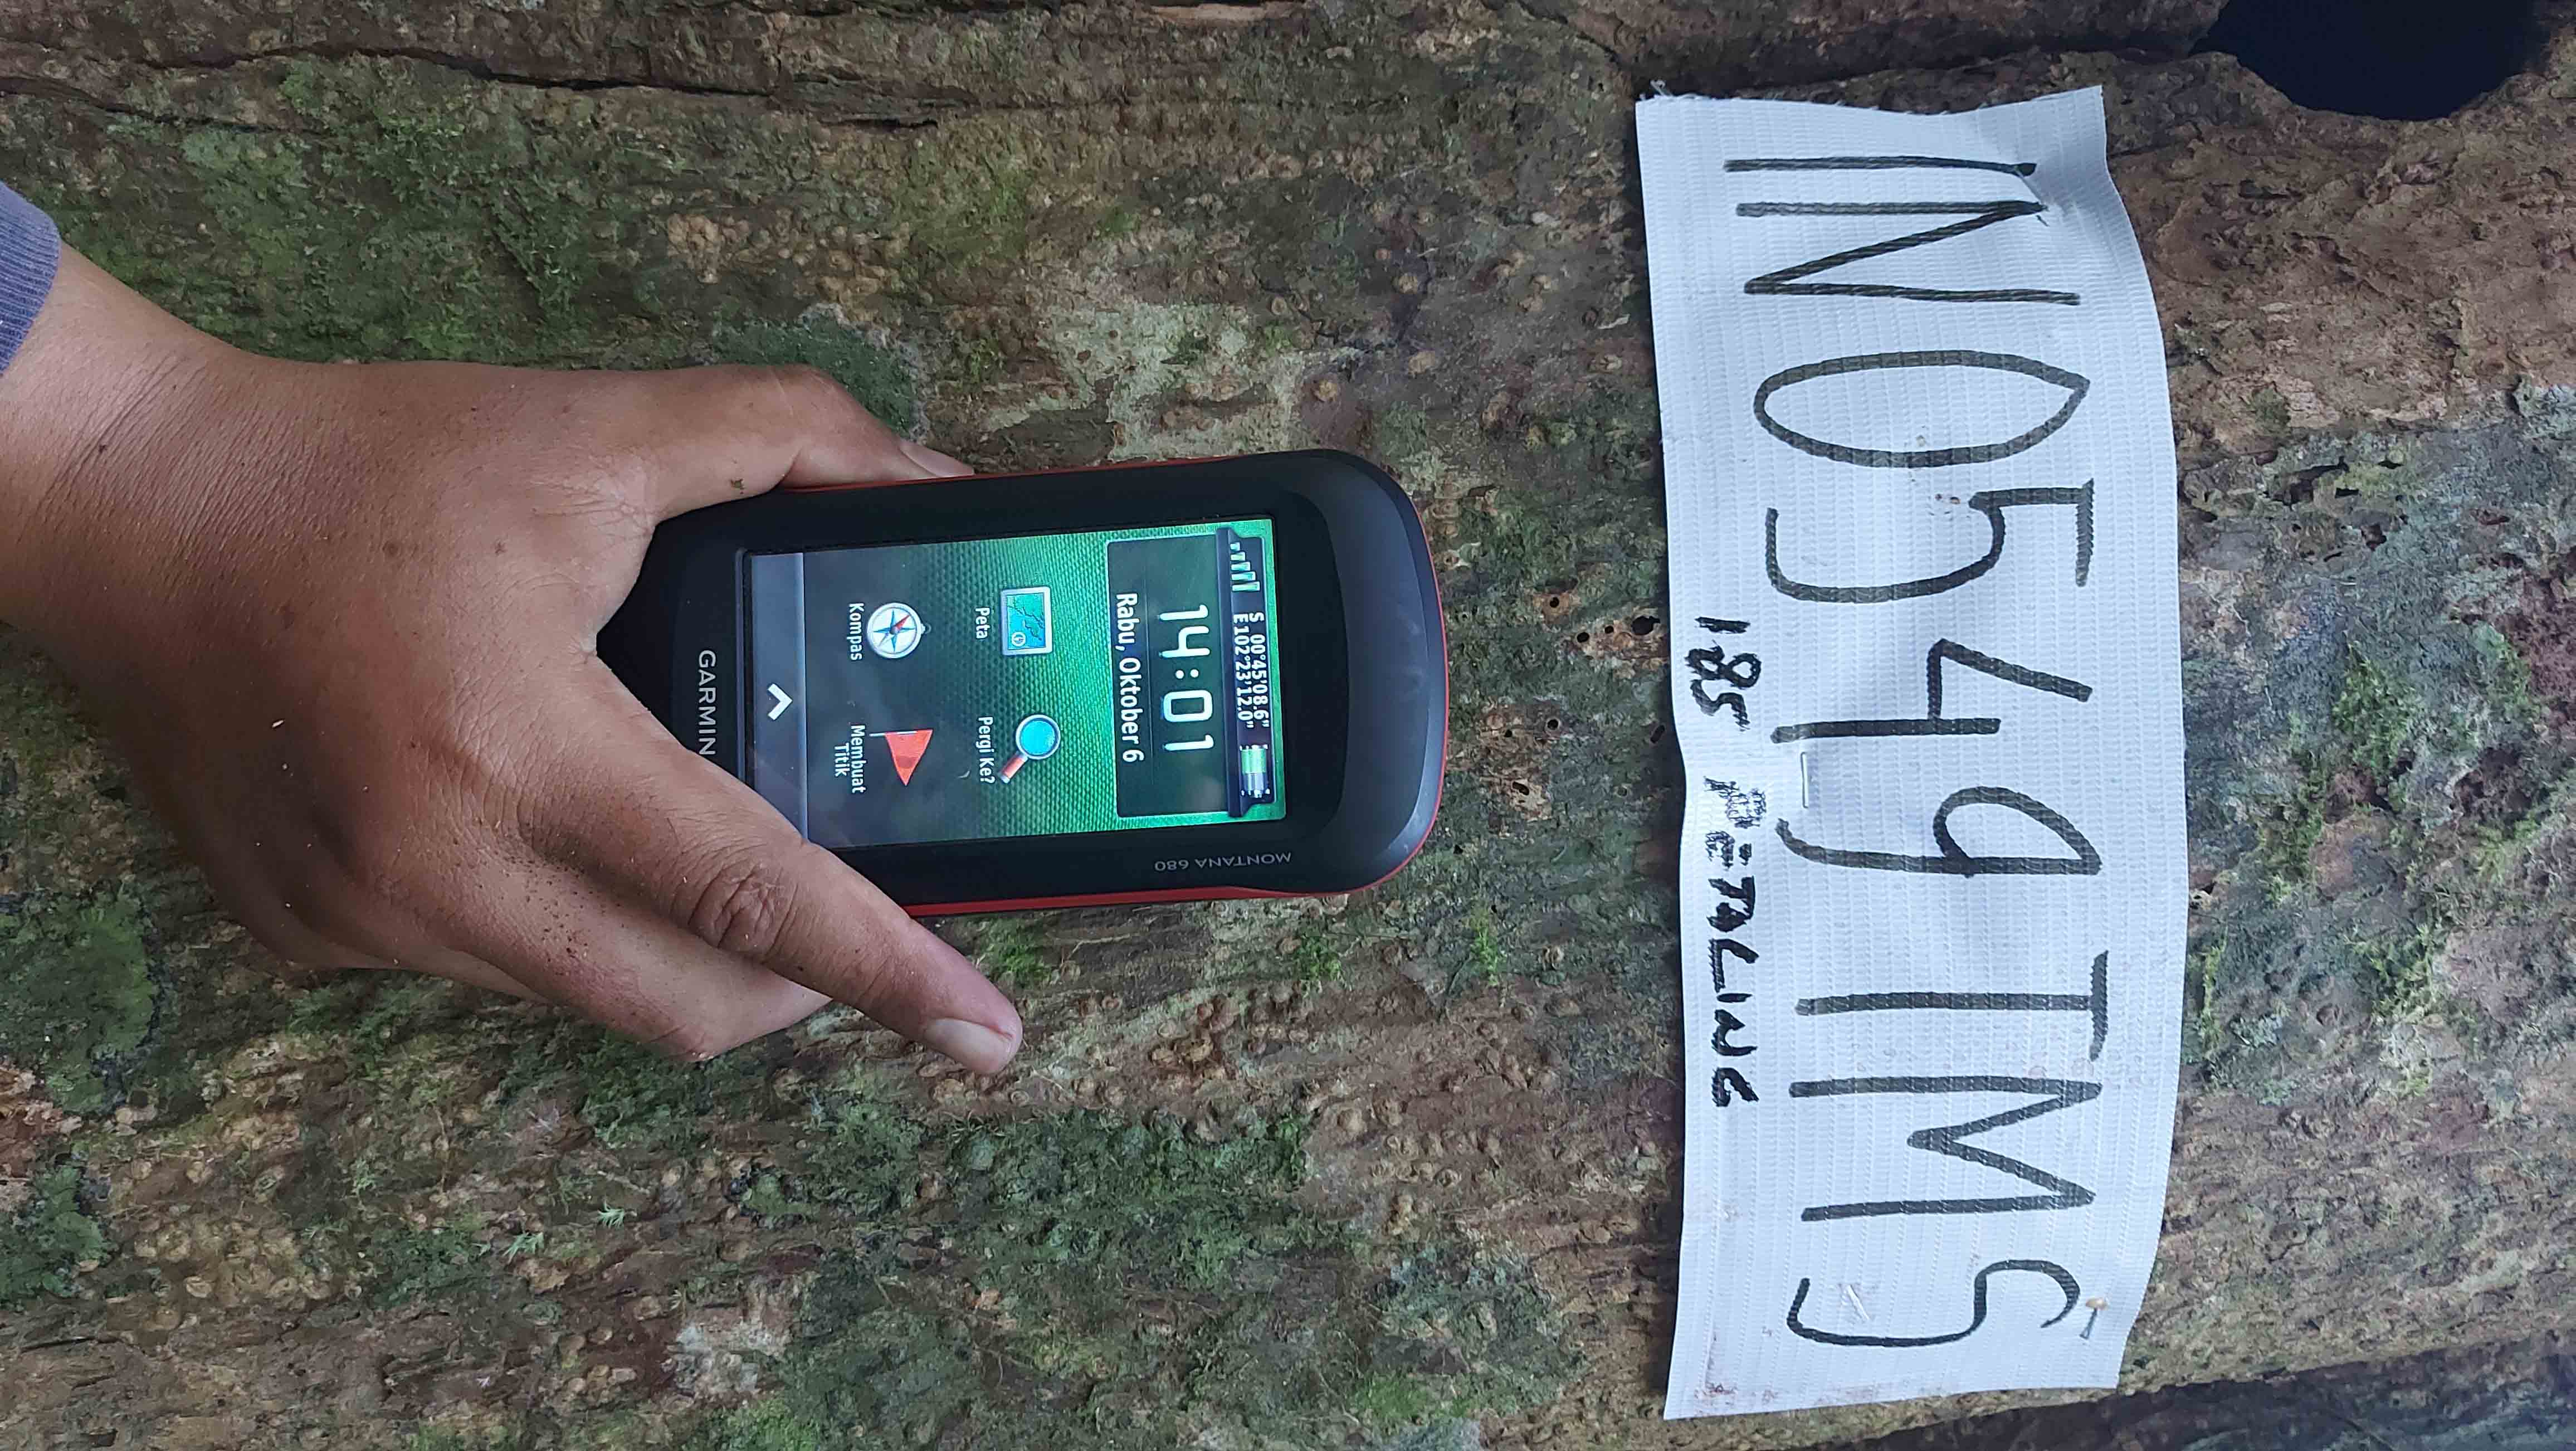 INO549TMS
185 PETALING
MONTANA 680
S 00°45'08.6"
E102°23'12.0"
14:01
Rabu, Oktober 6
Peta
Pergi Ke?
Kompas
Membuat
Titik
GARMIN